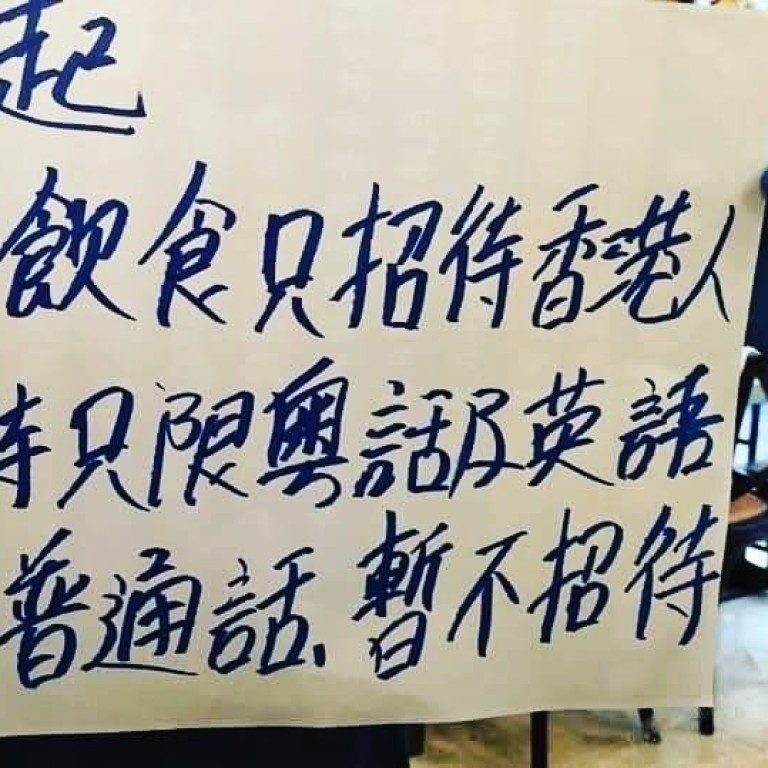 起
飲食只招待香港人
待只限粵話及英語
普通話、暫不招待